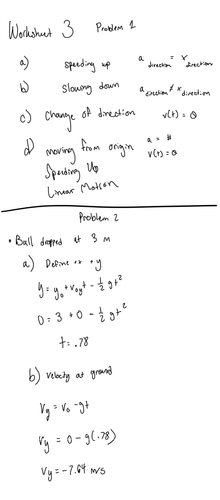 Worksheet 3 Problem 1
a) speeding up a direction = x direction
b) slowing down a direction ≠ x direction
c) change of direction v(t) = 0
d) moving from origin a = #
Speeding Up v(t) = 0
Linear Motion
Problem 2
• Ball dropped at 3 m
a) Define ++ +y
y = y₀ + v₀y t - 1/2 gt²
0 = 3 + 0 - 1/2 gt²
t = .78
b) Velocity at ground
Vy = V₀ - gt
Vy = 0 - g(.78)
Vy = -7.64 m/s